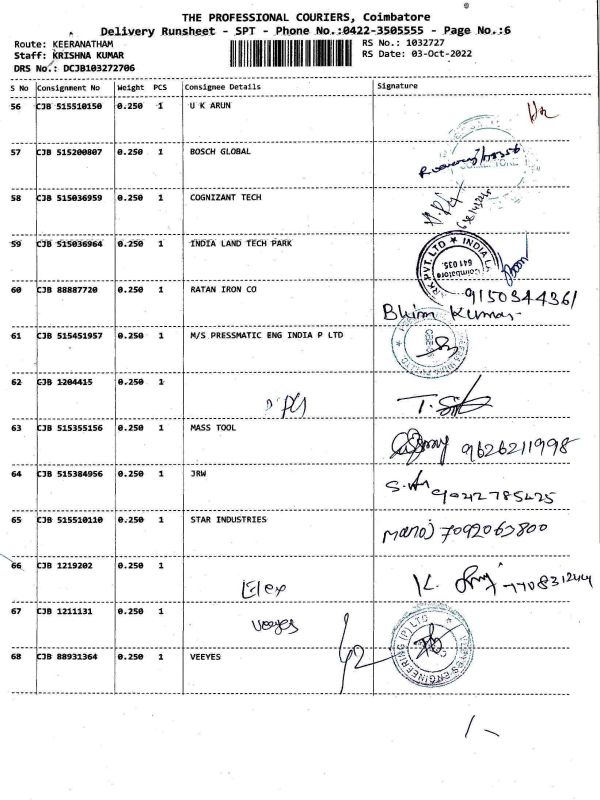 THE PROFESSIONAL COURIERS, Coimbatore
Delivery Runsheet - SPT - Phone No.:0422-3505555 - Page No.:6
Route: KEERANATHAM
RS No.: 1032727
Staff: KRISHNA KUMAR
RS Date: 03-Oct-2022
DRS No.: DCJB103272706
S No Consignment No Weight PCS Consignee Details Signature
56 CJB 515510150 0.250 1 U K ARUN
57 CJB 515200807 0.250 1 BOSCH GLOBAL
58 CJB 515036959 0.250 1 COGNIZANT TECH
59 CJB 515036964 0.250 1 INDIA LAND TECH PARK
PVT. LTD ★ INDIA
Coimbatore
641 035.
60 CJB 88887720 0.250 1 RATAN IRON CO
9150344361
Bhim Kumar
61 CJB 515451957 0.250 1 M/S PRESSMATIC ENG INDIA P LTD
62 CJB 1204415 0.250 1
63 CJB 515355156 0.250 1 MASS TOOL
9626211998
64 CJB 515384956 0.250 1 JRW
65 CJB 515510110 0.250 1 STAR INDUSTRIES
Manoj 7092063800
66 CJB 1219202 0.250 1
Elex
67 CJB 1211131 0.250 1
veeyes
VEEYES ENGINEERING (P) LTD
68 CJB 88931364 0.250 1 VEEYES